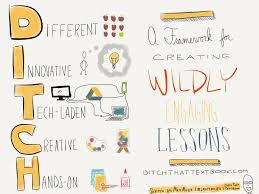 DIFFERENT
INNOVATIVE
TECH-LADEN
CREATIVE
HANDS-ON
A Framework for
CREATING
WILDLY
ENGAGING
LESSONS
DITCHTHATTEXTBOOK.COM